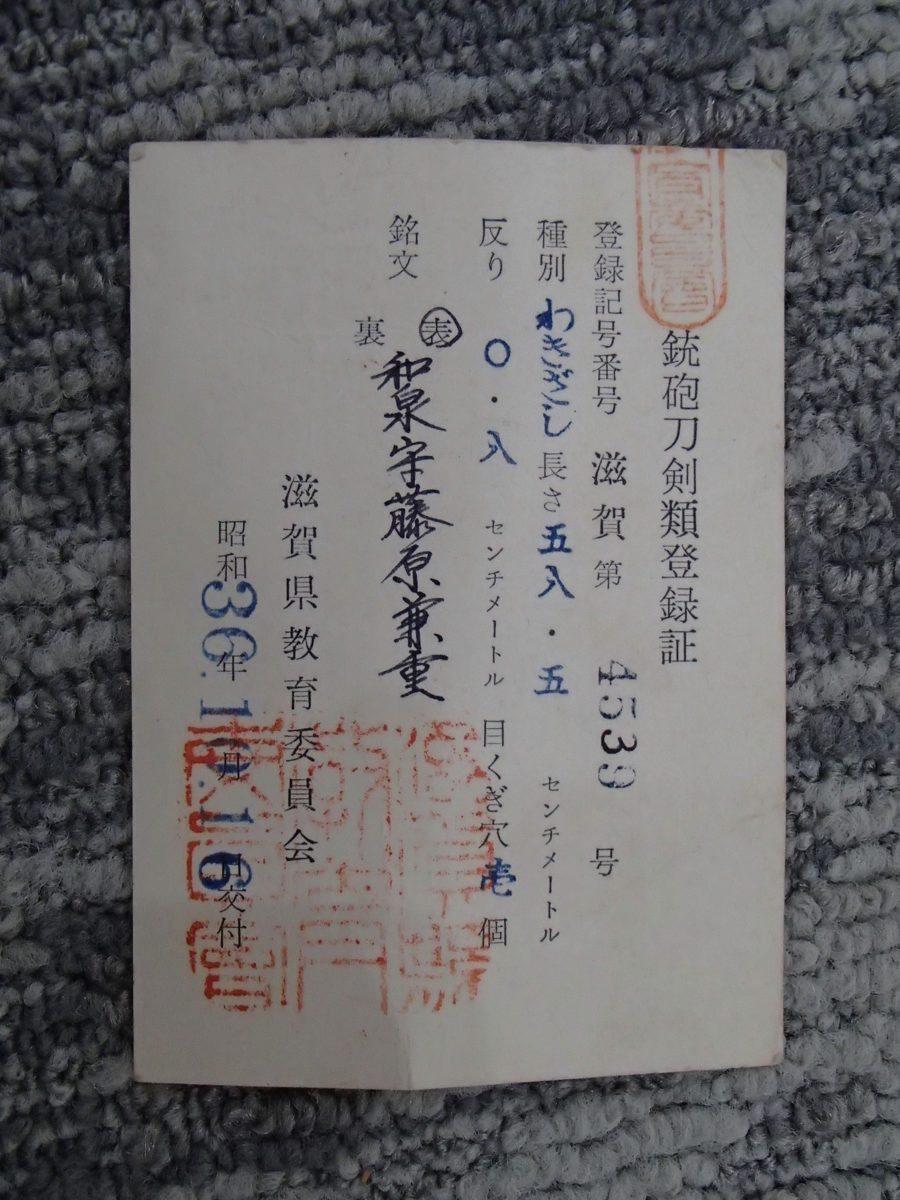 銃砲刀剣類登録証
登録記号番号 滋賀第 4539 号
種別 わきざし 長さ 五八・五 センチメートル
反り 〇・八 センチメートル 目くぎ穴 壱 個
銘文 表 和泉守藤原兼重
裏
滋賀県教育委員会
昭和36年10月16日交付